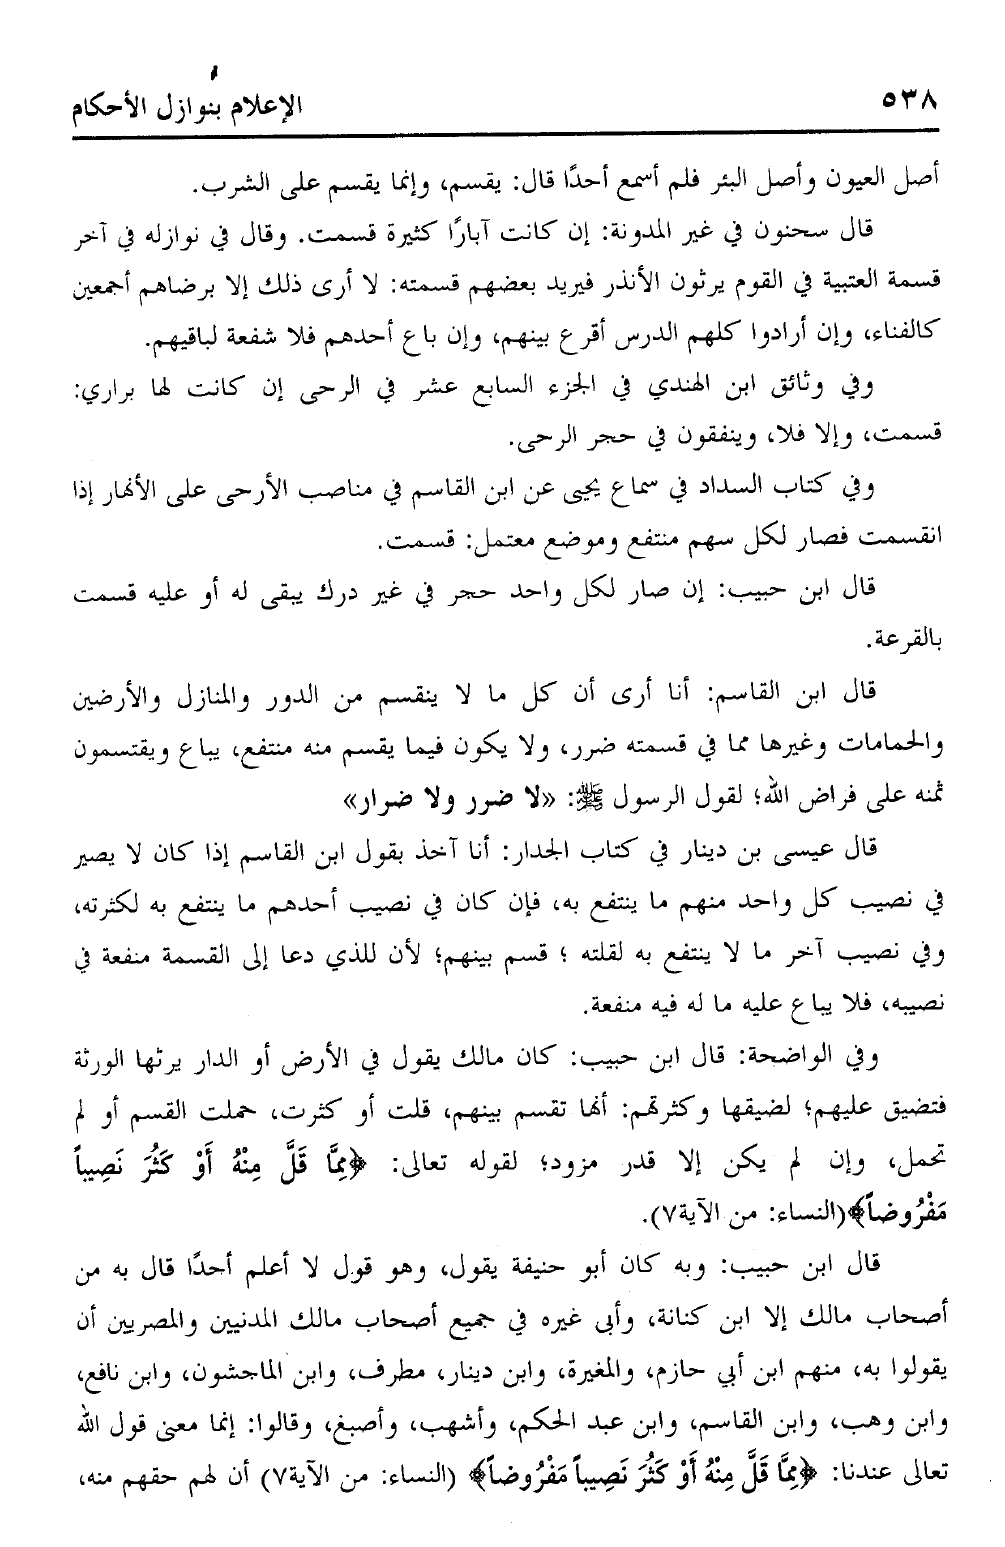 ٥٣٨
الإعلام بنوازل الأحكام
أصل العيون وأصل البئر فلم أسمع أحدًا قال: يقسم، وإنما يقسم على الشرب.
قال سحنون في غير المدونة: إن كانت آبارًا كثيرة قسمت. وقال في نوازله في آخر
قسمة العتبية في القوم يرثون الأنذر فيريد بعضهم قسمته: لا أرى ذلك إلا برضاهم أجمعين
كالفناء، وإن أرادوا كلهم الدرس أقرع بينهم، وإن باع أحدهم فلا شفعة لباقيهم.
وفي وثائق ابن الهندي في الجزء السابع عشر في الرحى إن كانت لها براري:
قسمت، وإلا فلا، وينفقون في حجر الرحى.
وفي كتاب السداد في سماع يحيى عن ابن القاسم في مناصب الأرحى على الأنهار إذا
انقسمت فصار لكل سهم منتفع وموضع معتمل: قسمت.
قال ابن حبيب: إن صار لكل واحد حجر في غير درك يبقى له أو عليه قسمت
بالقرعة.
قال ابن القاسم: أنا أرى أن كل ما لا ينقسم من الدور والمنازل والأرضين
والحمامات وغيرها مما في قسمته ضرر، ولا يكون فيما يقسم منه منتفع، يباع ويقتسمون
ثمنه على فراض الله؛ لقول الرسول ﷺ: «لا ضرر ولا ضرار»
قال عيسى بن دينار في كتاب الجدار: أنا آخذ بقول ابن القاسم إذا كان لا يصير
في نصيب كل واحد منهم ما ينتفع به، فإن كان في نصيب أحدهم ما ينتفع به لكثرته،
وفي نصيب آخر ما لا ينتفع به لقلته ؛ قسم بينهم؛ لأن للذي دعا إلى القسمة منفعة في
نصيبه، فلا يباع عليه ما له فيه منفعة.
وفي الواضحة: قال ابن حبيب: كان مالك يقول في الأرض أو الدار يرثها الورثة
فتضيق عليهم؛ لضيقها وكثرتهم: أنها تقسم بينهم، قلت أو كثرت، حملت القسم أو لم
تحمل، وإن لم يكن إلا قدر مزود؛ لقوله تعالى: ﴿مِمَّا قَلَّ مِنْهُ أَوْ كَثُرَ نَصِيباً
مَفْرُوضاً﴾(النساء: من الآية٧).
قال ابن حبيب: وبه كان أبو حنيفة يقول، وهو قول لا أعلم أحدًا قال به من
أصحاب مالك إلا ابن كنانة، وأبى غيره في جميع أصحاب مالك المدنيين والمصريين أن
يقولوا به، منهم ابن أبي حازم، والمغيرة، وابن دينار، مطرف، وابن الماجشون، وابن نافع،
وابن وهب، وابن القاسم، وابن عبد الحكم، وأشهب، وأصبغ، وقالوا: إنما معنى قول الله
تعالى عندنا: ﴿مِمَّا قَلَّ مِنْهُ أَوْ كَثُرَ نَصِيباً مَفْرُوضاً﴾ (النساء: من الآية٧) أن لهم حقهم منه،